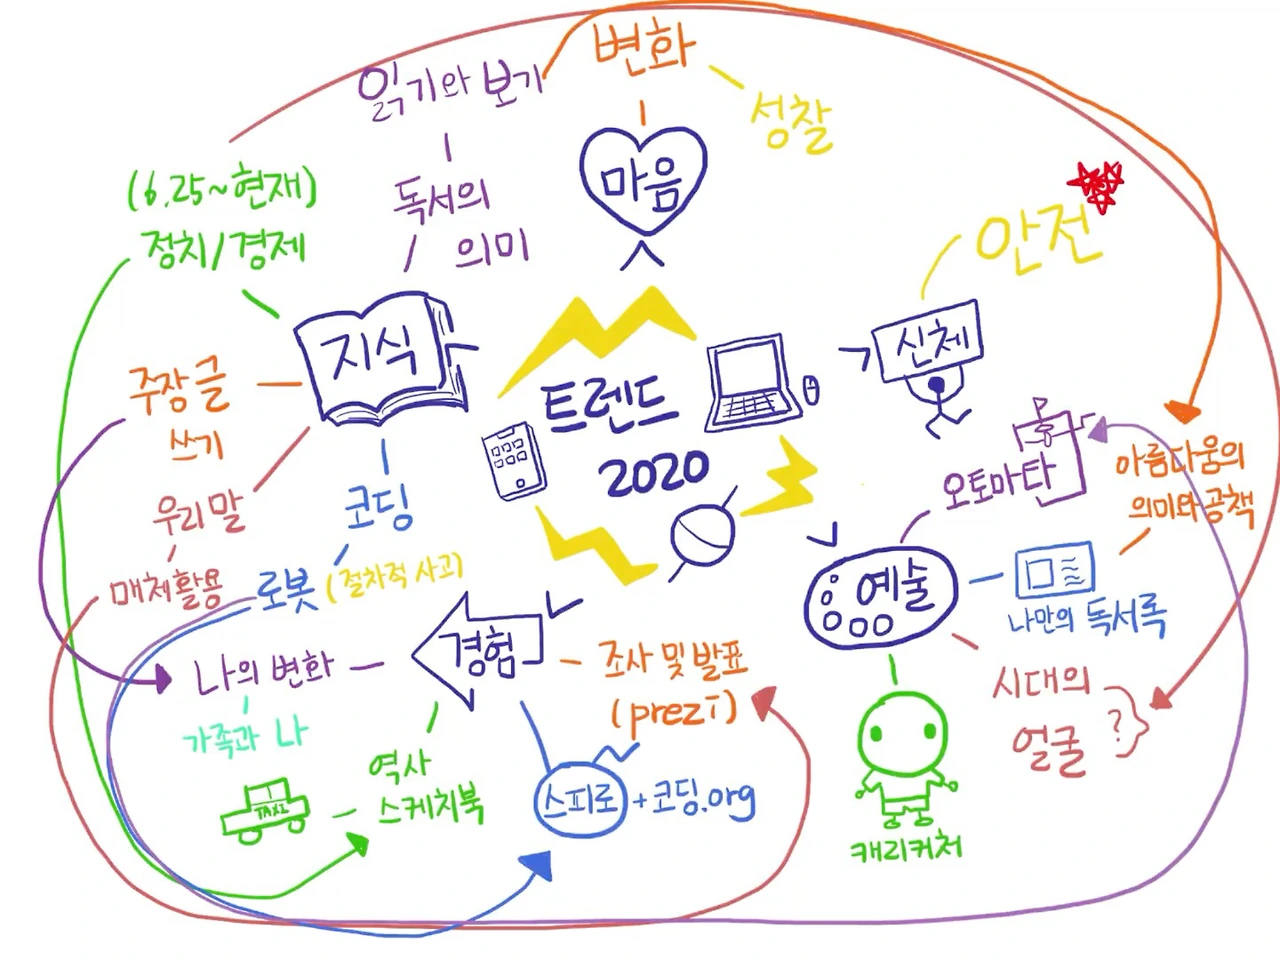 변화
읽기와 보기
성찰
마음
(6.25~현재)
정치/경제
독서의
의미
안전
지식
신체
주장글
쓰기
트렌드
2020
우리말
코딩
오토마타
아름다움의
의미와 공책
매체활용
로봇 (절차적 사고)
예술
나만의 독서록
경험
나의 변화
가족과 나
조사 및 발표
(prezi)
시대의
얼굴
?
역사
스케치북
TAXI
스피로 + 코딩.org
캐리커처